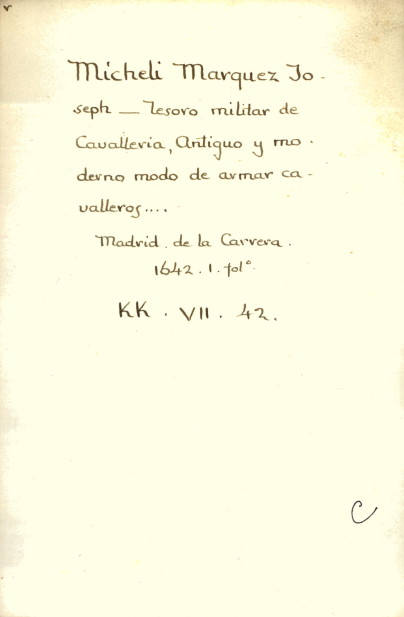 Micheli Marquez Jo-
seph — Tesoro militar de
Cavalleria, Antiguo y mo-
derno modo de armar ca-
valleros....
Madrid. de la Carrera.
1642. 1. folº.
KK. VII. 42.
C